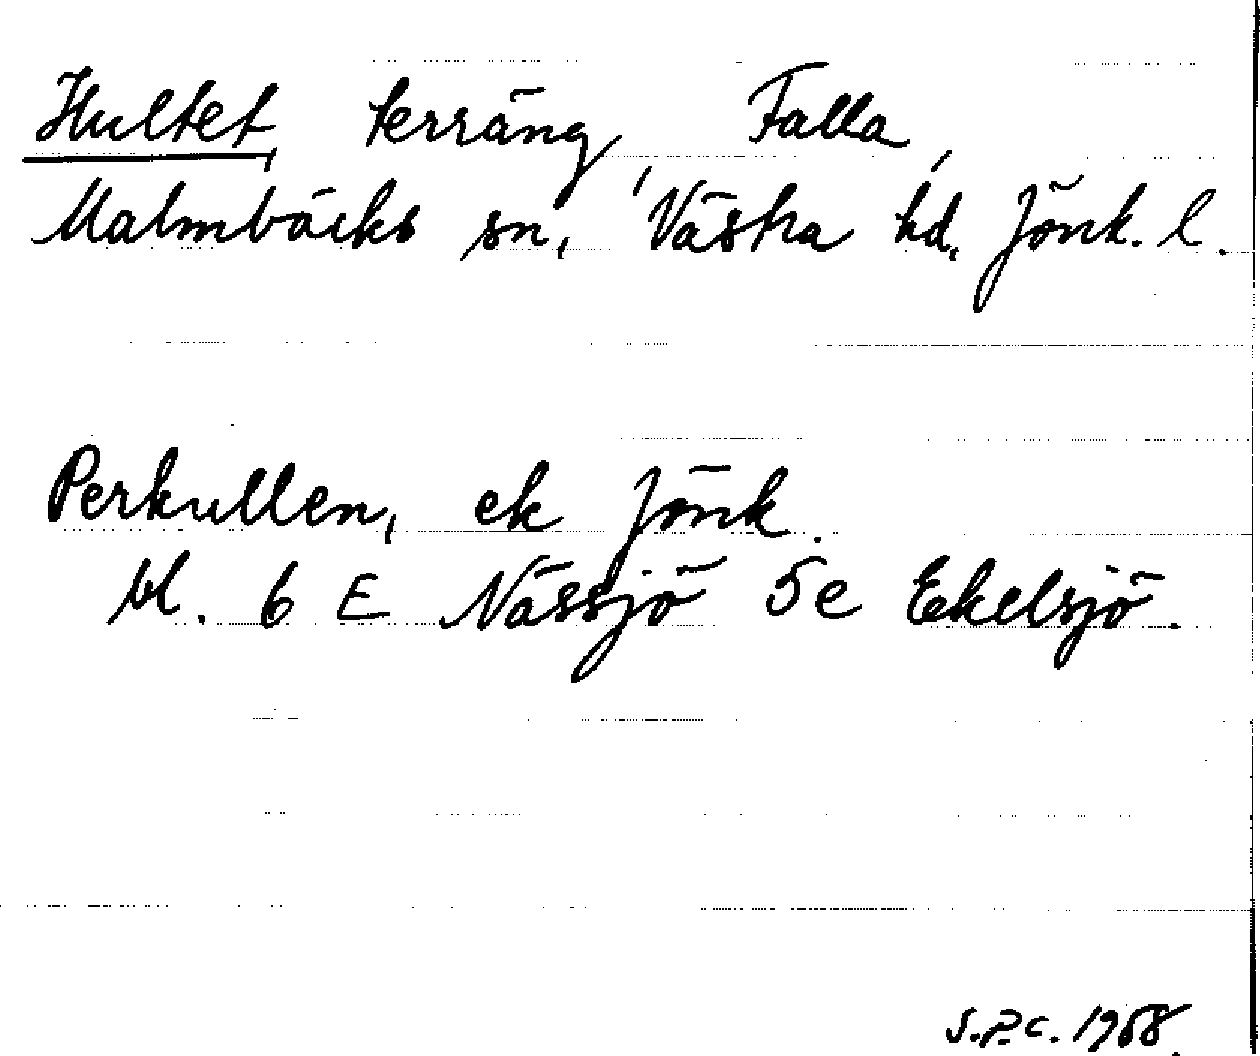 Hultet, terräng, Falla,
Malmbäcks sn, Västra hd, Jönk. l.
Perkullen, ek Jönk.
bl. 6 E Nässjö 5e Ekelsjö.
S.P.C. 1968.